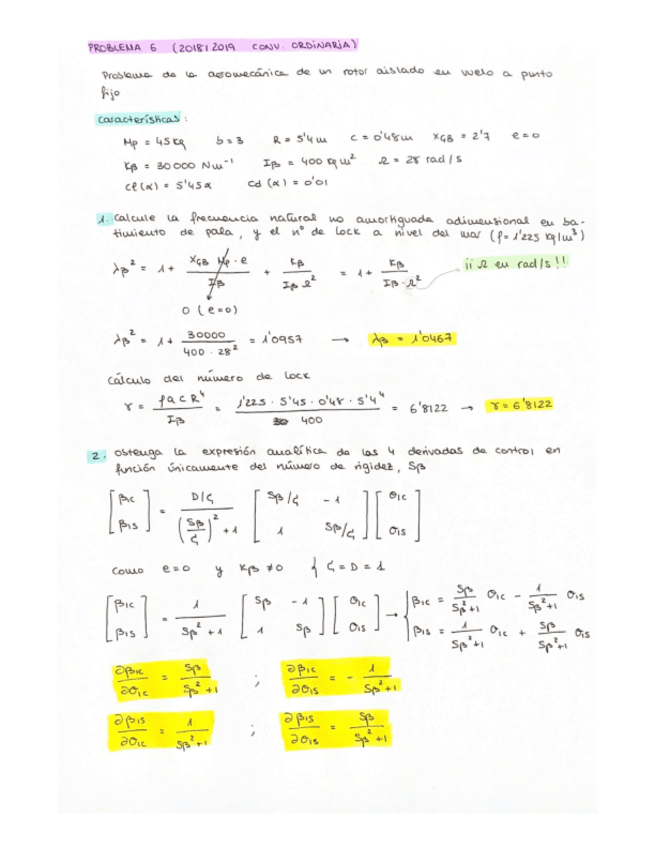 PROBLEMA 6 (2018/2019 CONV. ORDINARIA)
Problema de la aeromecánica de un rotor aislado en vuelo a punto
fijo
Características:
Mp = 45 kg b = 3 R = 5'4 m c = 0'48 m XGB = 2'7 e = 0
Kβ = 30000 N m⁻¹ Iβ = 400 kg m² Ω = 28 rad/s
cl(α) = 5'45 α cd(α) = 0'01
1. Calcule la frecuencia natural no amortiguada adimensional en ba-
timiento de pala, y el nº de Lock a nivel del mar (ρ = 1'225 kg/m³)
λβ² = 1 + (XGB Mp · e)/Iβ + Kβ/(Iβ Ω²) = 1 + Kβ/(Iβ · Ω²) ¡¡ Ω en rad/s !!
0 (e=0)
λβ² = 1 + 30000/(400 · 28²) = 1'0957 → λβ = 1'0467
Cálculo del número de Lock
γ = (ρ a c R⁴)/Iβ = (1'225 · 5'45 · 0'48 · 5'4⁴)/400 = 6'8122 → γ = 6'8122
2. Obtenga la expresión analítica de las 4 derivadas de control en
función únicamente del número de rigidez, Sβ
[β1C β1S] = (D/ζ)/((Sβ/ζ)² + 1) [Sβ/ζ -1 1 Sβ/ζ] [θ1C θ1S]
Como e=0 y Kβ ≠ 0 { ζ = D = 1
[β1C β1S] = 1/(Sβ² + 1) [Sβ -1 1 Sβ] [θ1C θ1S] → { β1C = Sβ/(Sβ²+1) θ1C - 1/(Sβ²+1) θ1S
β1S = 1/(Sβ²+1) θ1C + Sβ/(Sβ²+1) θ1S
∂β1C/∂θ1C = Sβ/(Sβ²+1) ; ∂β1C/∂θ1S = - 1/(Sβ²+1)
∂β1S/∂θ1C = 1/(Sβ²+1) ; ∂β1S/∂θ1S = Sβ/(Sβ²+1)